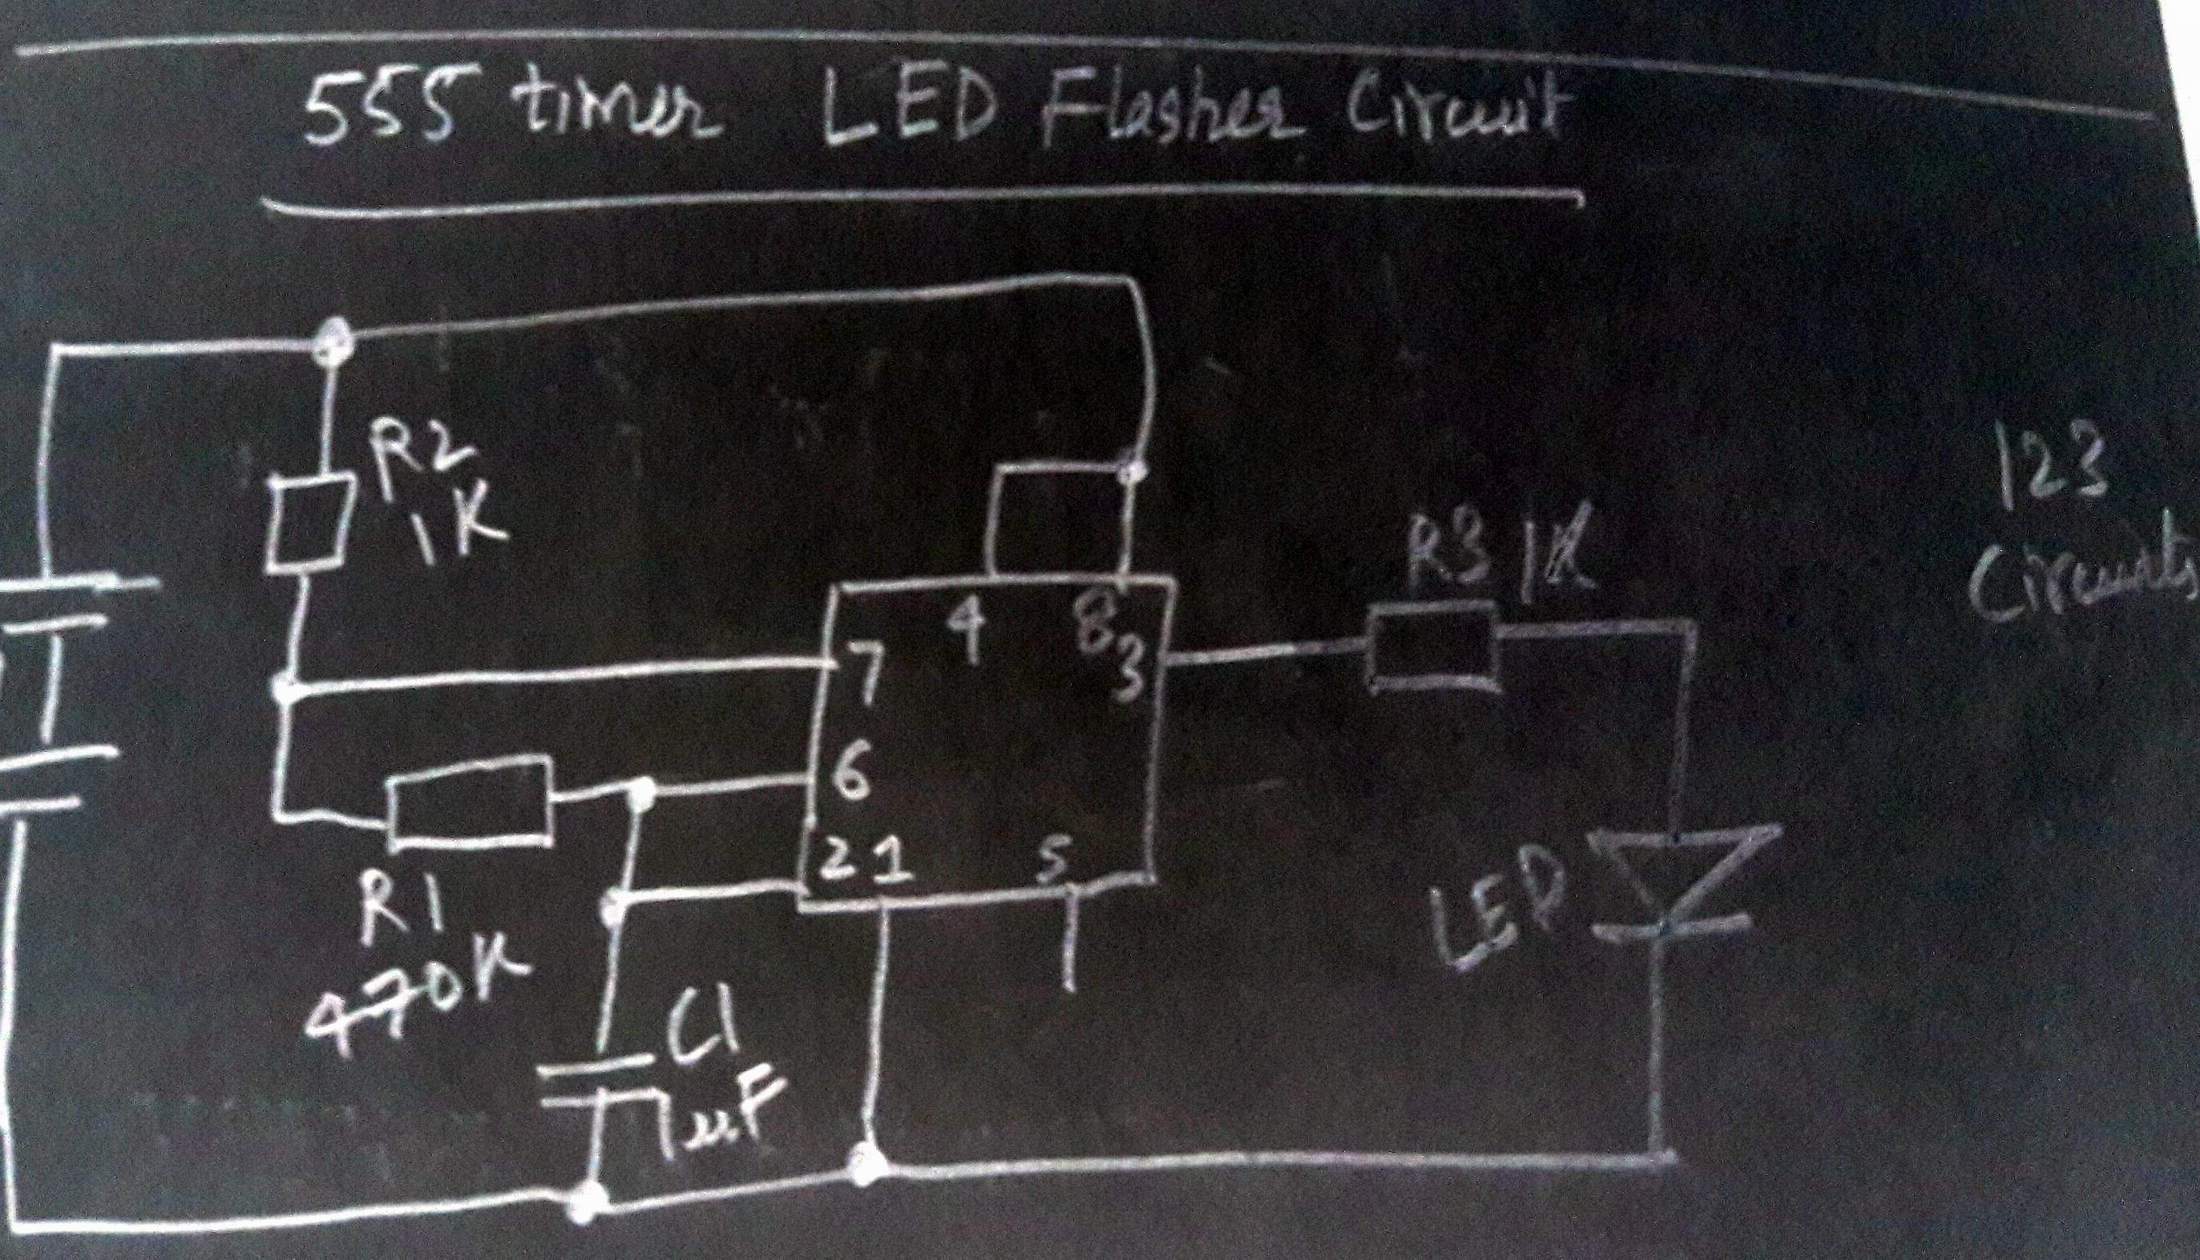 555 timer LED Flasher Circuit
R2
1K
R3 1K
123
Circuits
4 8
7 3
6
2 1 5
R1
470K
LED
C1
1uF